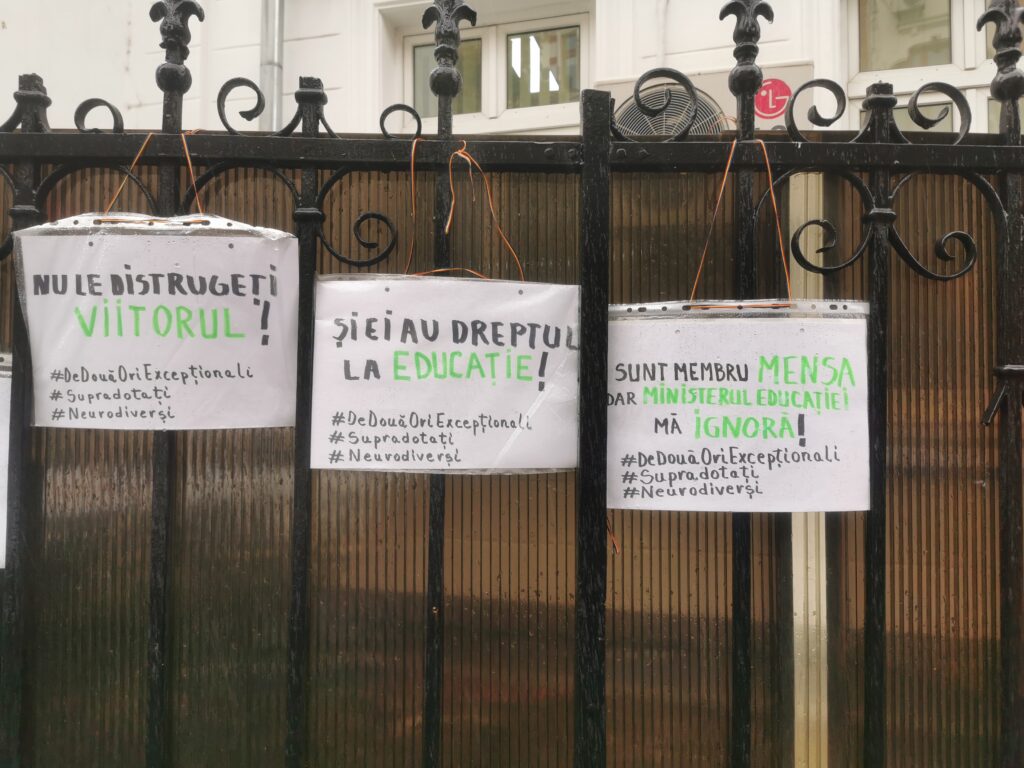 NU LE DISTRUGEȚI
VIITORUL!
#DeDouăOriExcepționali
#Supradotați
#Neurodiverși
ȘI EI AU DREPTUL
LA EDUCAȚIE!
#DeDouăOriExcepționali
#Supradotați
#Neurodiverși
SUNT MEMBRU MENSA
DAR MINISTERUL EDUCAȚIEI
MĂ IGNORĂ!
#DeDouăOriExcepționali
#Supradotați
#Neurodiverși
LG